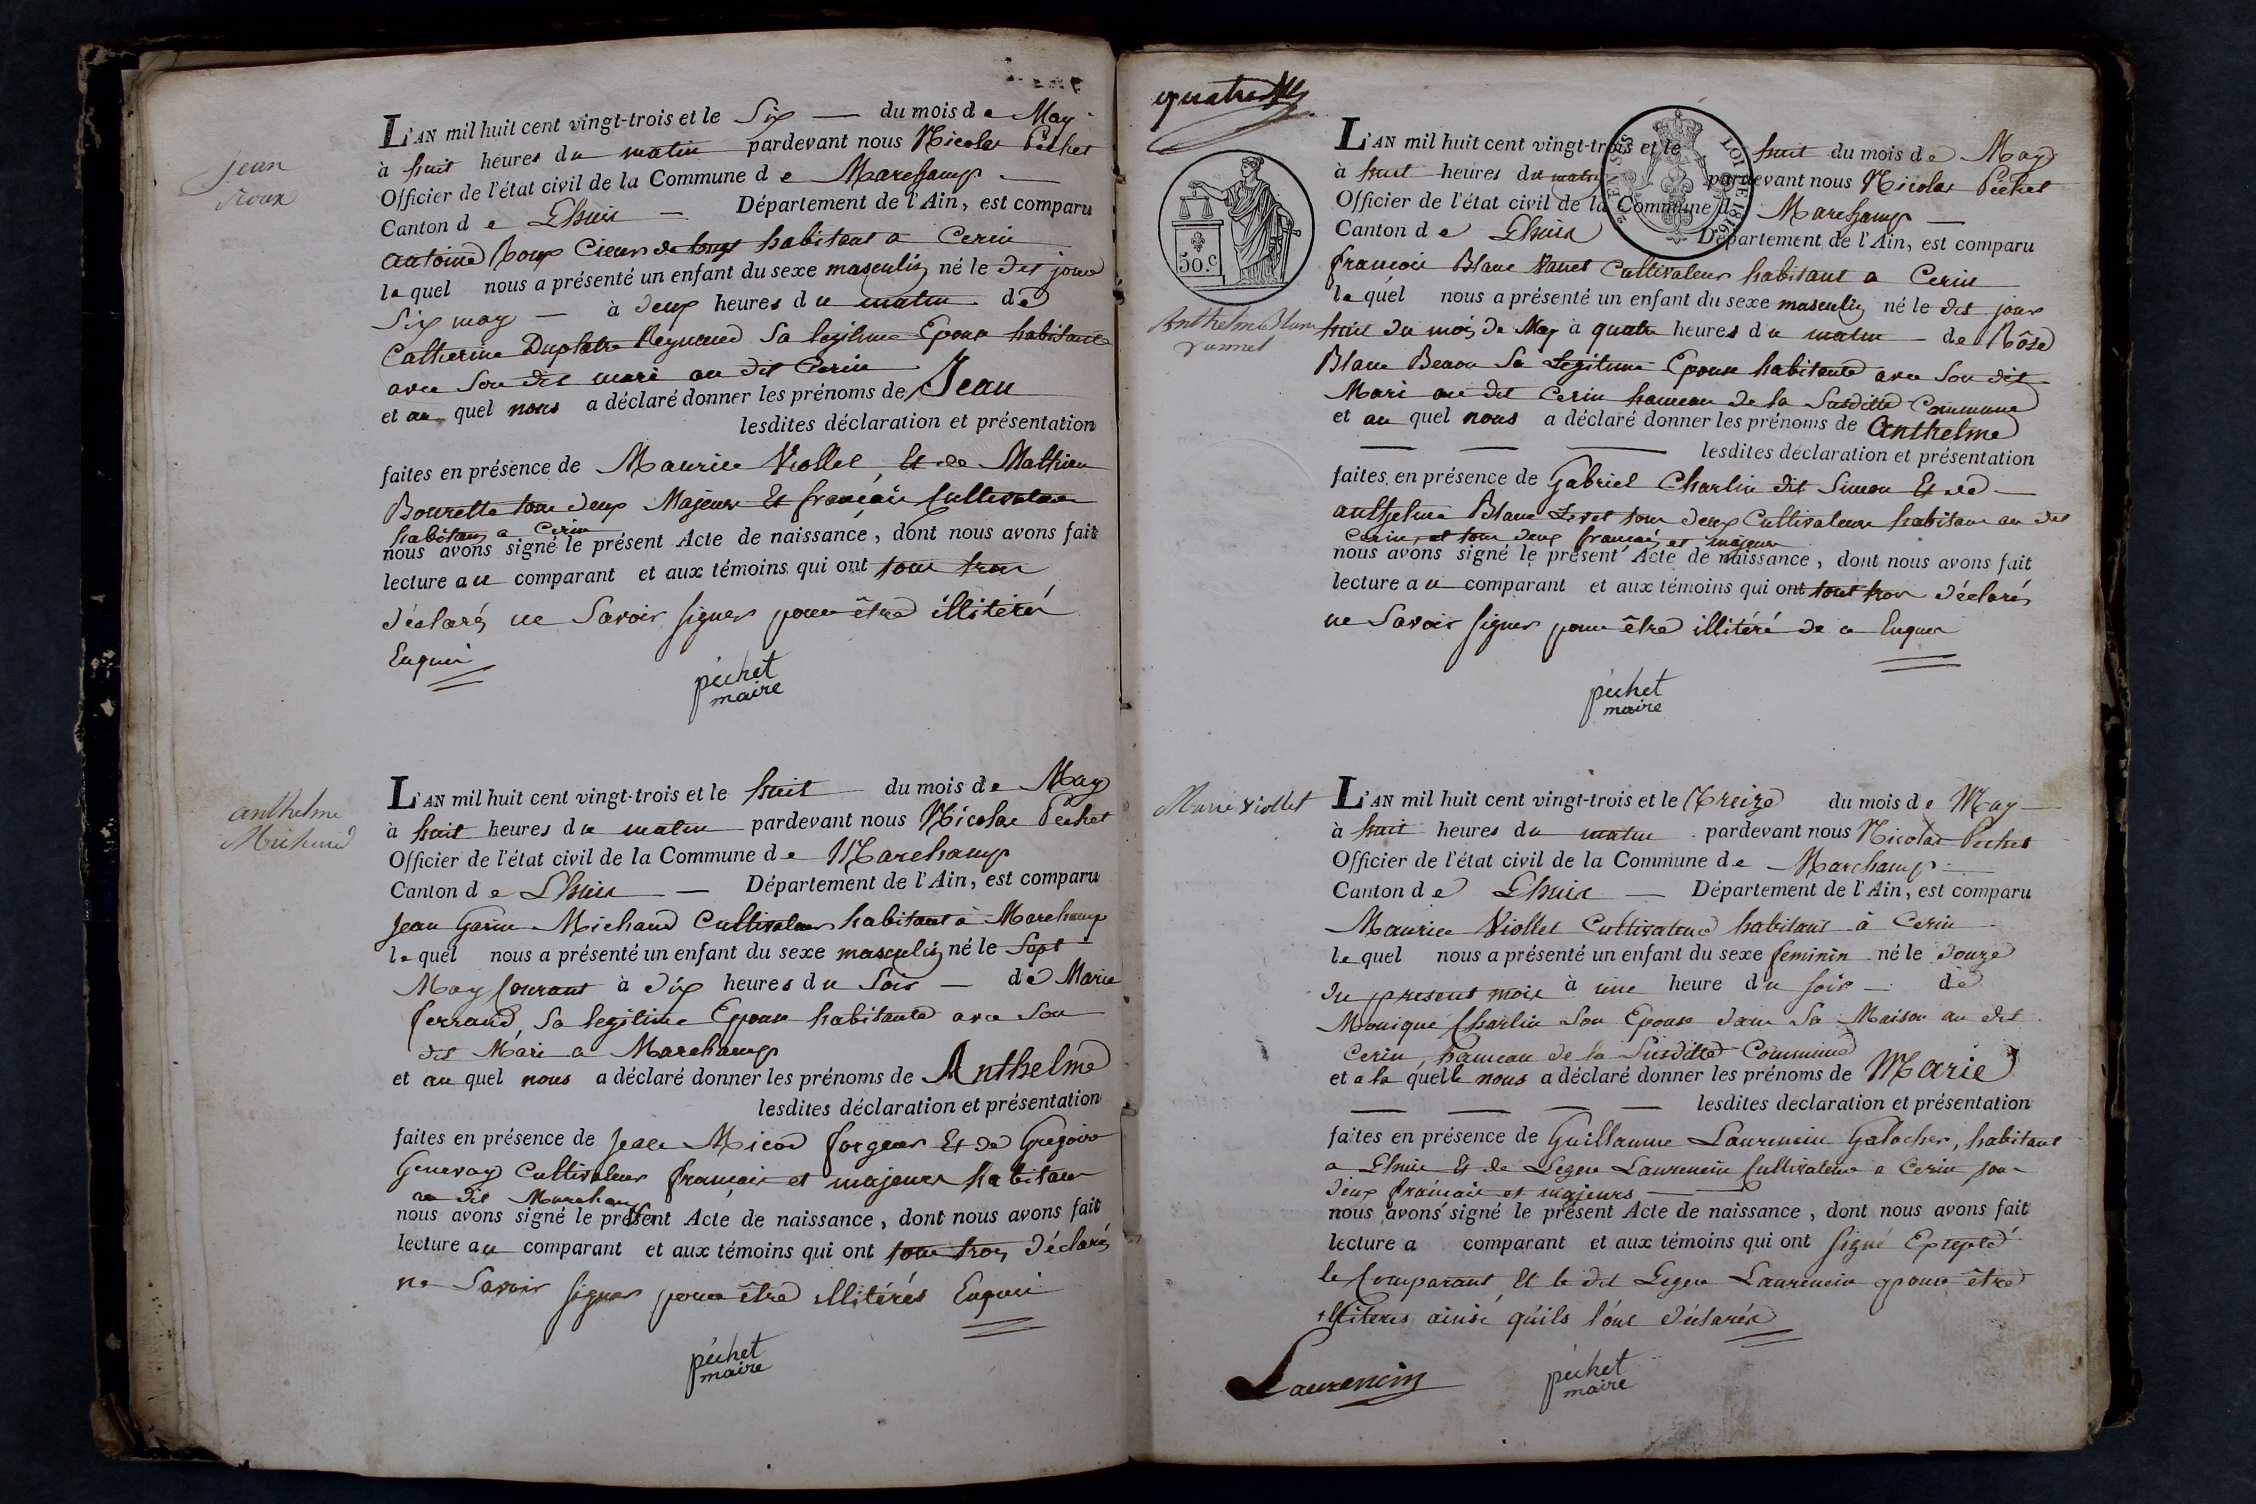 Jean
Roux
L'AN mil huit cent vingt-trois et le Six — du mois de May
à huit heures du matin pardevant nous Nicolas Péchet
Officier de l'état civil de la Commune de Marchamp —
Canton de Lhuis — Département de l'Ain, est comparu
antoine Roux Cieur de longs habitant a Cerin
lequel nous a présenté un enfant du sexe masculin né le dit jour
Six may — à deux heures du matin de
Catherine Duplatre Reynaud Sa legitime Epouse habitante
avec Son dit mari au dit Cerin
et au quel nous a déclaré donner les prénoms de Jean
lesdites déclaration et présentation
faites en présence de Maurice Viollet Et de Mathieu
Bourette tous deux Majeurs Et français Cultivateurs
habitans a Cerin
nous avons signé le présent Acte de naissance, dont nous avons fait
lecture au comparant et aux témoins qui ont tous trois
déclarés ne Savoir signer pour être illitérés
Enquis
péchet
maire
anthelme
Michaud
L'AN mil huit cent vingt-trois et le huit — du mois de May
à huit heures du matin pardevant nous Nicolas Péchet
Officier de l'état civil de la Commune de Marchamp
Canton de Lhuis — Département de l'Ain, est comparu
Jean Garin Michaud Cultivateur habitant à Marchamp
lequel nous a présenté un enfant du sexe masculin né le Sept
May Courant à dix heures du Soir — de Marie
ferrand, Sa legitime Epouse habitante avec Son
dit Mari a Marchamp
et au quel nous a déclaré donner les prénoms de Anthelme
lesdites déclaration et présentation
faites en présence de Jean Micod forgeur Et de Gregoire
Genevay Cultivateur français et majeurs habitans
au dit Marchamp
nous avons signé le présent Acte de naissance, dont nous avons fait
lecture au comparant et aux témoins qui ont tous trois déclarés
ne Savoir signer pour être illitérés Enquis
péchet
maire
quatre
50.C
LOI DE 1816
Anthelme Blanc
Vannet
L'AN mil huit cent vingt-trois et le huit du mois de May
à huit heures du matin pardevant nous Nicolas Péchet
Officier de l'état civil de la Commune de Marchamp —
Canton de Lhuis Département de l'Ain, est comparu
françois Blanc Vanet Cultivateur habitant a Cerin
lequel nous a présenté un enfant du sexe masculin né le dit jour
huit du mois de May à quatre heures du matin — de Rôse
Blanc Beaon Sa Legitime Epouse habitante avec Son dit
Mari au dit Cerin hameau de la Susditte Commune
et au quel nous a déclaré donner les prénoms de Anthelme
— — — lesdites déclaration et présentation
faites en présence de Gabriel Charlin dit Simon Et de —
anthelme Blanc tous deux Cultivateurs habitans au dit
Cerin, et tous deux français et majeurs
nous avons signé le présent Acte de naissance, dont nous avons fait
lecture au comparant et aux témoins qui ont tous trois déclarés
ne Savoir signer pour être illitéré de ce Enquis
péchet
maire
Marie Viollet
L'AN mil huit cent vingt-trois et le Treize du mois de May —
à huit heures du matin pardevant nous Nicolas Péchet
Officier de l'état civil de la Commune de Marchamp —
Canton de Lhuis — Département de l'Ain, est comparu
Maurice Viollet Cultivateur habitant à Cerin
lequel nous a présenté un enfant du sexe feminin né le douze
du present mois à une heure du soir — de
Monique Charlin Son Epouse dans Sa Maison au dit
Cerin, hameau de la Susditte Commune
et a la quelle nous a déclaré donner les prénoms de Marie
— — — — lesdites declaration et présentation
faites en présence de Guillaume Laurencin Galocher, habitant
a Lhuis Et de Leger Laurencin Cultivateur a Cerin tous
deux français et majeurs —
nous avons signé le présent Acte de naissance, dont nous avons fait
lecture a comparant et aux témoins qui ont signé Excepté
le Comparant, Et le dit Leger Laurencin pour être
illiteres ainsi qu'ils l'ont déclarés
Laurencin
péchet
maire